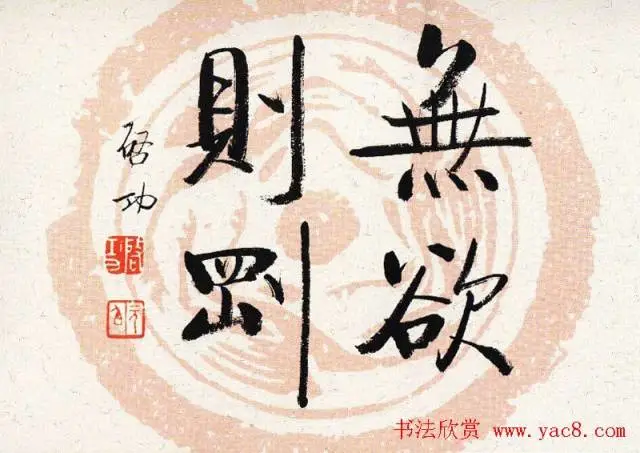 無欲
則剛
啓功
启功
元白
书法欣赏 www.yac8.com